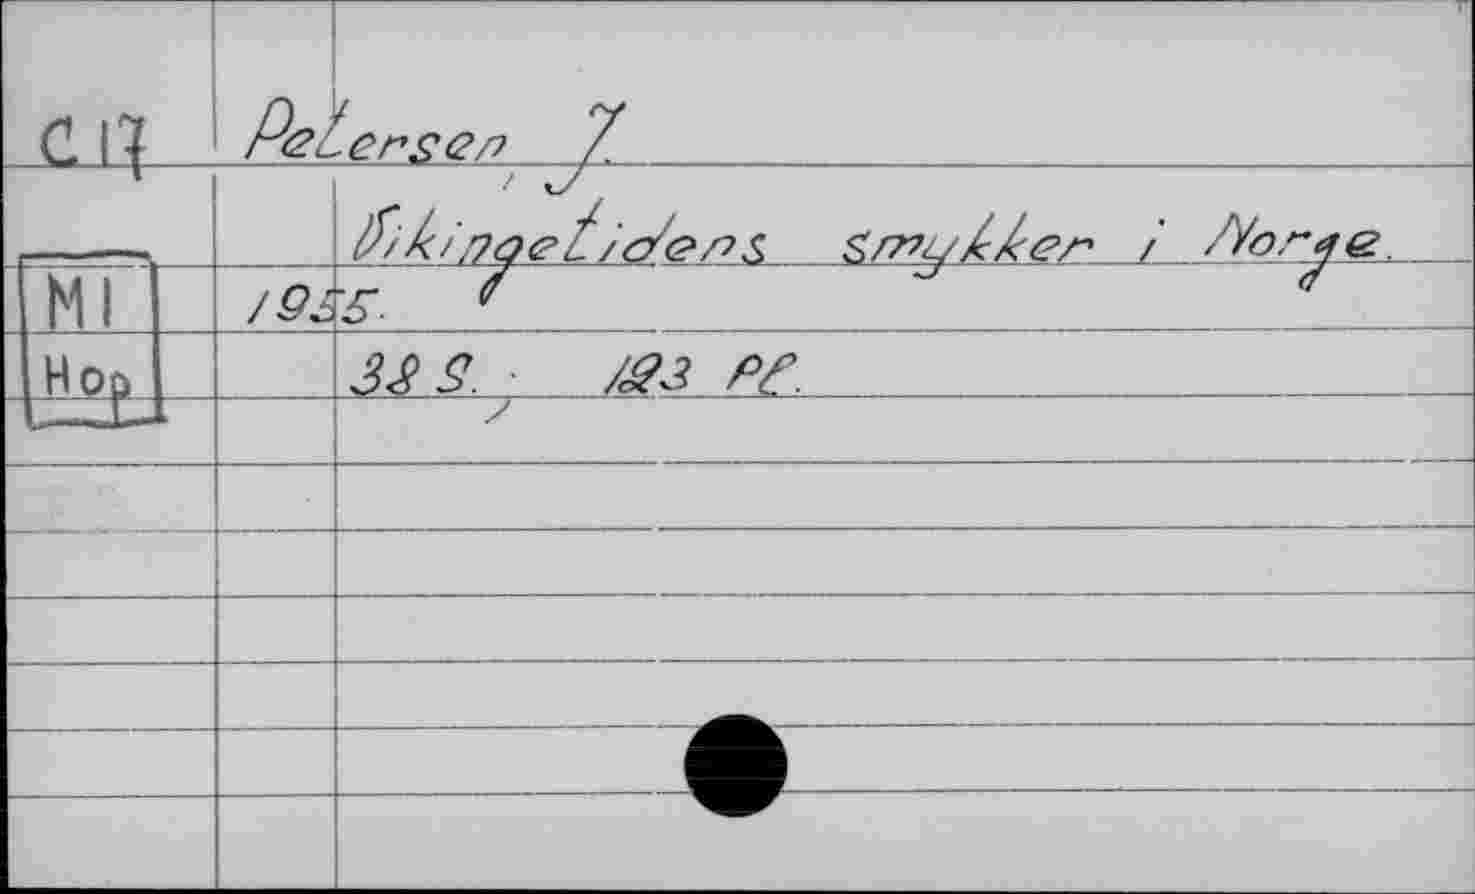 C 17 Petersen, J.
Vikingetidens smykker i Norge.
MI 1955.
Hop 38 S.; 193 Pl.